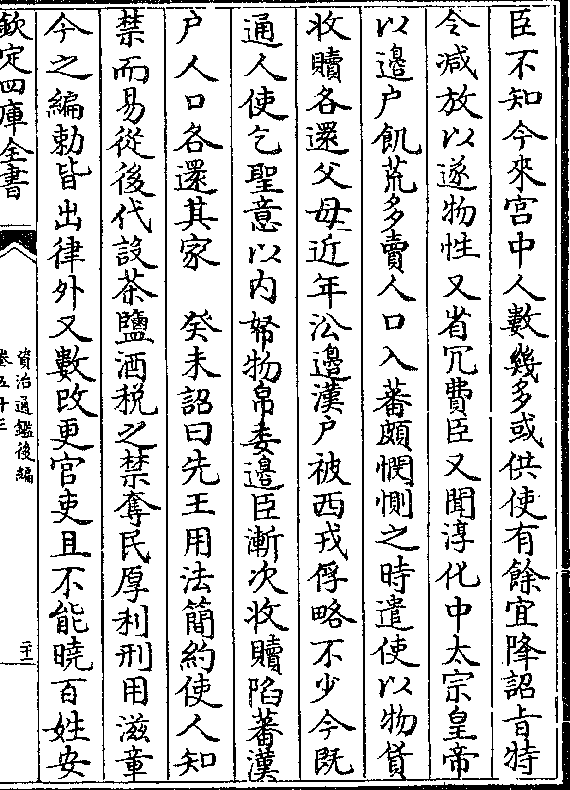 臣不知今來宫中人數幾多或供使有餘宜降詔㫖特
令減放以遂物性又省冗費臣又聞淳化中太宗皇帝
以邊户飢荒多賣人口入蕃頗惘惻之時遣使以物貨
收贖各還父母近年㳂邊漢户被西戎俘略不少今既
通人使乞聖意以内婦物帛委邊臣漸次收贖陷蕃漢
户人口各還其家　癸未詔曰先王用法簡約使人知
禁而易從後代設茶鹽酒税之禁奪民厚利刑用滋章
今之編勅皆出律外又數改更官吏且不能曉百姓安
欽定四庫全書
資治通鑑後編
卷五十三